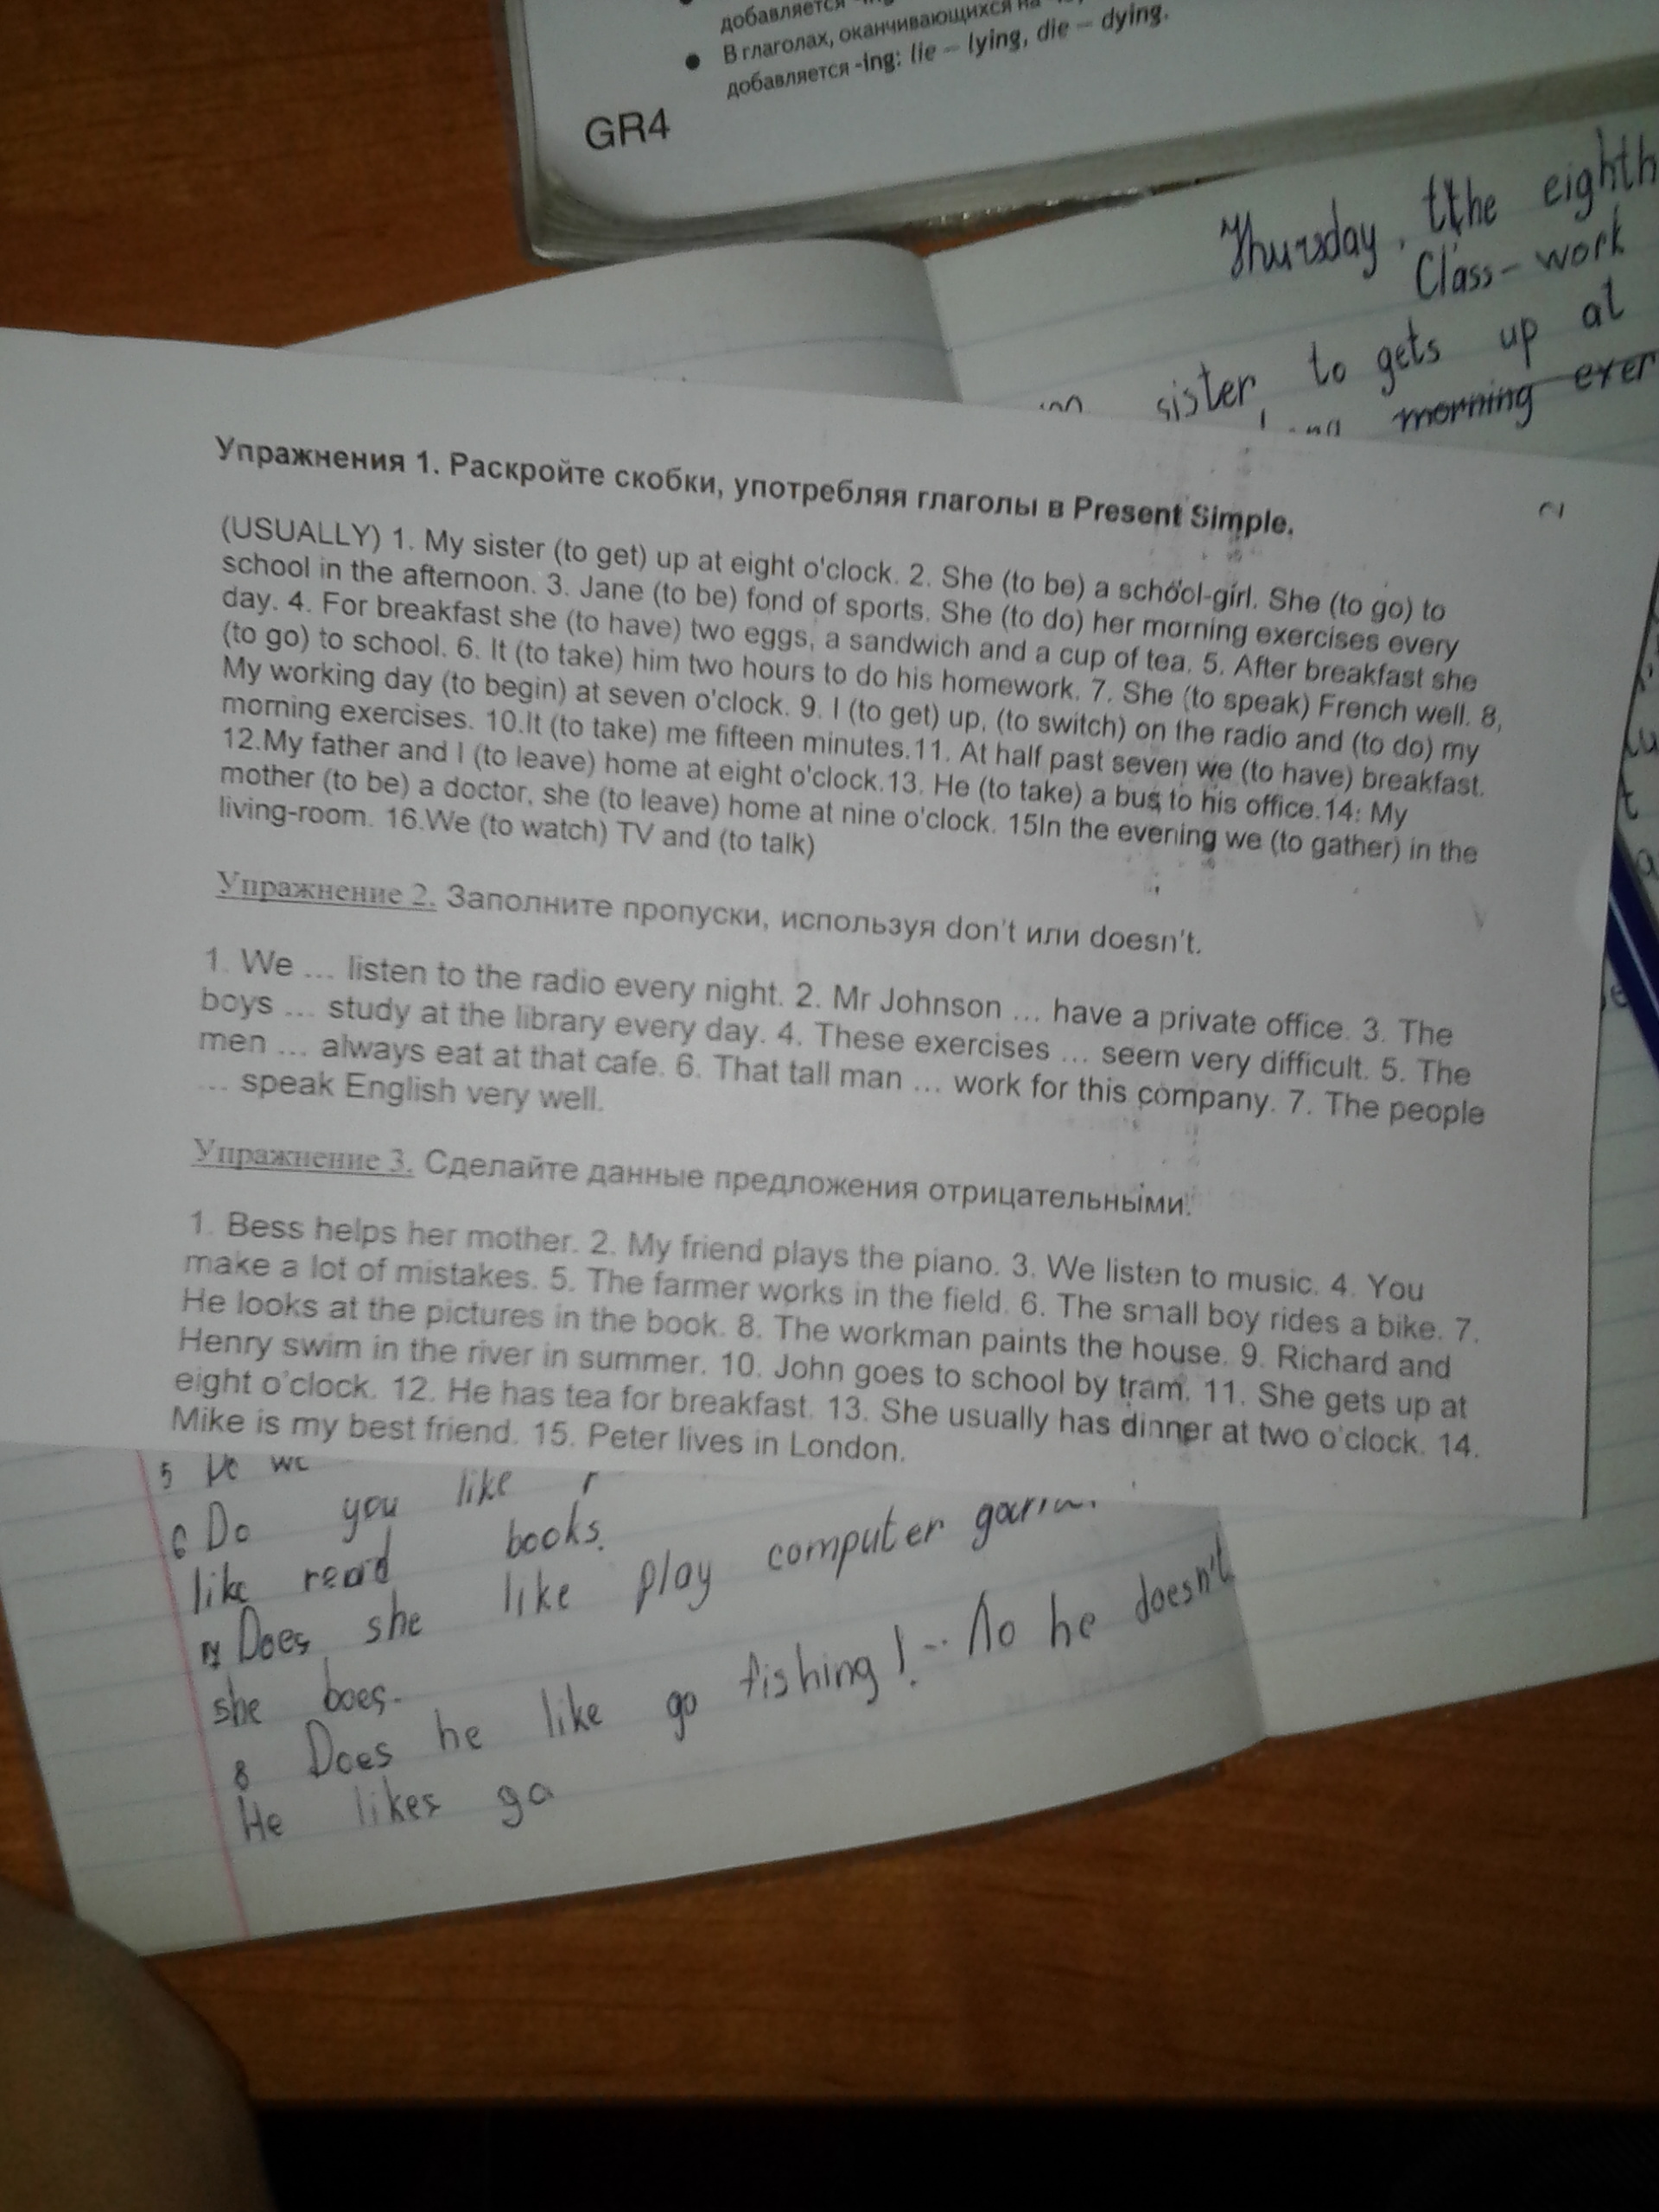 добавляется -ing
В глаголах, оканчивающихся на
добавляется -ing: lie – lying, die – dying.
GR4
Thursday, tthe eighth
Class-work
sister to gets up at
morning exer
Упражнения 1. Раскройте скобки, употребляя глаголы в Present Simple.
(USUALLY) 1. My sister (to get) up at eight o'clock. 2. She (to be) a school-girl. She (to go) to
school in the afternoon. 3. Jane (to be) fond of sports. She (to do) her morning exercises every
day. 4. For breakfast she (to have) two eggs, a sandwich and a cup of tea. 5. After breakfast she
(to go) to school. 6. It (to take) him two hours to do his homework. 7. She (to speak) French well. 8,
My working day (to begin) at seven o'clock. 9. I (to get) up, (to switch) on the radio and (to do) my
morning exercises. 10.It (to take) me fifteen minutes.11. At half past seven we (to have) breakfast.
12.My father and I (to leave) home at eight o'clock.13. He (to take) a bus to his office.14: My
mother (to be) a doctor, she (to leave) home at nine o'clock. 15In the evening we (to gather) in the
living-room. 16.We (to watch) TV and (to talk)
Упражнение 2. Заполните пропуски, используя don't или doesn't.
1. We ... listen to the radio every night. 2. Mr Johnson ... have a private office. 3. The
boys ... study at the library every day. 4. These exercises ... seem very difficult. 5. The
men ... always eat at that cafe. 6. That tall man ... work for this company. 7. The people
... speak English very well.
Упражнение 3. Сделайте данные предложения отрицательными.
1. Bess helps her mother. 2. My friend plays the piano. 3. We listen to music. 4. You
make a lot of mistakes. 5. The farmer works in the field. 6. The small boy rides a bike. 7.
He looks at the pictures in the book. 8. The workman paints the house. 9. Richard and
Henry swim in the river in summer. 10. John goes to school by tram. 11. She gets up at
eight o'clock. 12. He has tea for breakfast. 13. She usually has dinner at two o'clock. 14.
Mike is my best friend. 15. Peter lives in London.
5
6 Do you like
like read books.
Does she like play computer
she boes.
8 Does he like go fishing! - No he doesn't
He likes go